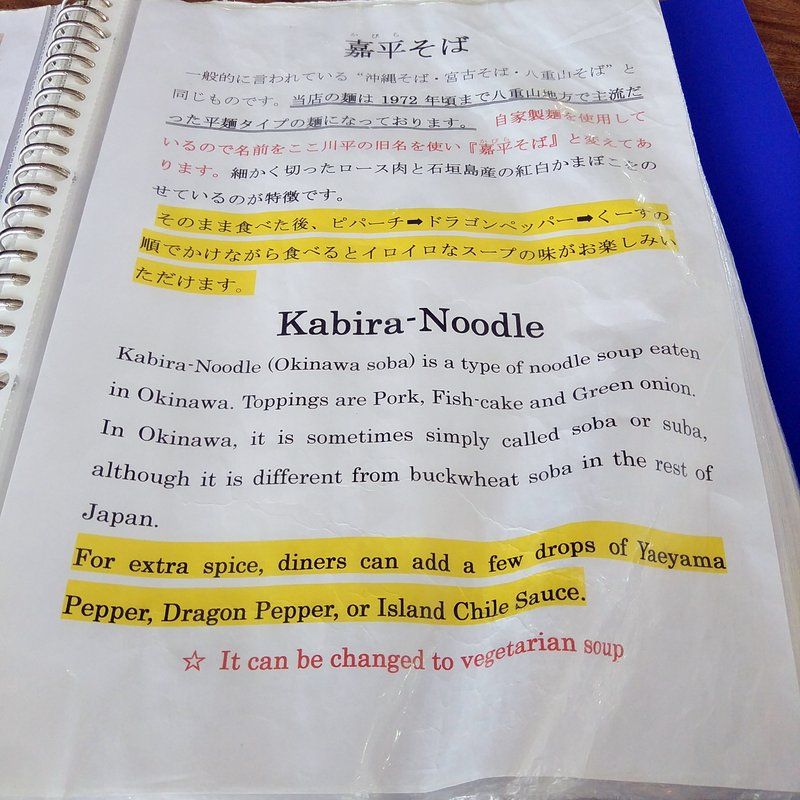 かびら
嘉平そば
一般的に言われている“沖縄そば・宮古そば・八重山そば”と
同じものです。当店の麺は 1972 年頃まで八重山地方で主流だ
った平麺タイプの麺になっております。 自家製麺を使用して
いるので名前をここ川平の旧名を使い『嘉平そば』と変えてあ
ります。細かく切ったロース肉と石垣島産の紅白かまぼこをの
せているのが特徴です。
そのまま食べた後、ピパーチ➡ドラゴンペッパー➡くーすの
順でかけながら食べるとイロイロなスープの味がお楽しみい
ただけます。
Kabira-Noodle
Kabira-Noodle (Okinawa soba) is a type of noodle soup eaten
in Okinawa. Toppings are Pork, Fish-cake and Green onion.
In Okinawa, it is sometimes simply called soba or suba,
although it is different from buckwheat soba in the rest of
Japan.
For extra spice, diners can add a few drops of Yaeyama
Pepper, Dragon Pepper, or Island Chile Sauce.
☆ It can be changed to vegetarian soup